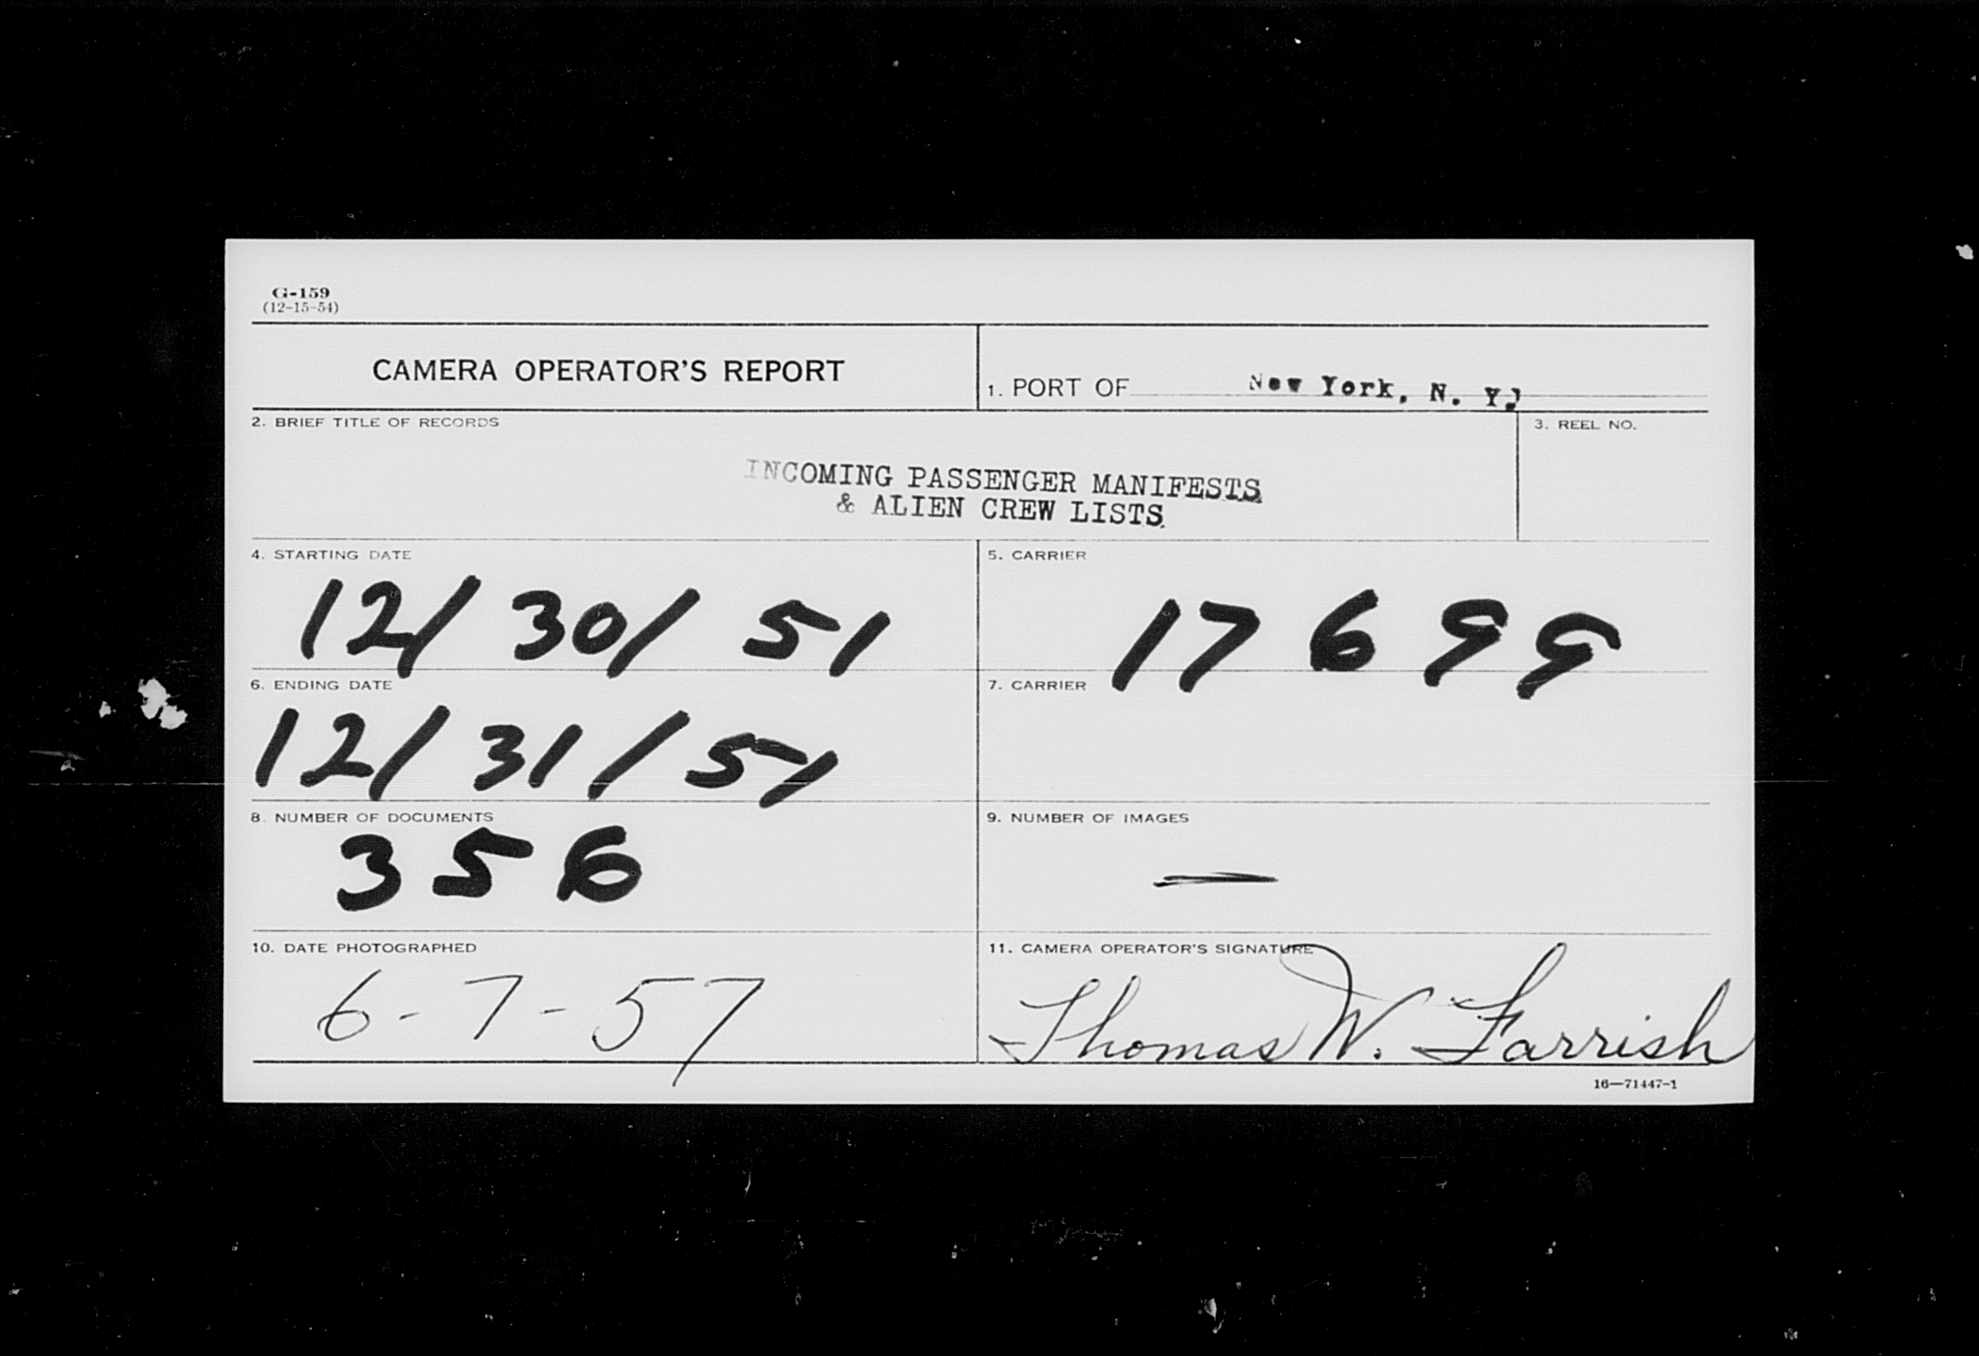 G-159
(12-15-54)
CAMERA OPERATOR'S REPORT
1. PORT OF New York, N. Y.
2. BRIEF TITLE OF RECORDS
3. REEL NO.
INCOMING PASSENGER MANIFESTS
& ALIEN CREW LISTS.
4. STARTING DATE
12/30/51
5. CARRIER
17699
6. ENDING DATE
12/31/51
7. CARRIER
8. NUMBER OF DOCUMENTS
356
9. NUMBER OF IMAGES
—
10. DATE PHOTOGRAPHED
6-7-57
11. CAMERA OPERATOR'S SIGNATURE
Thomas W. Farrish
16—71447-1